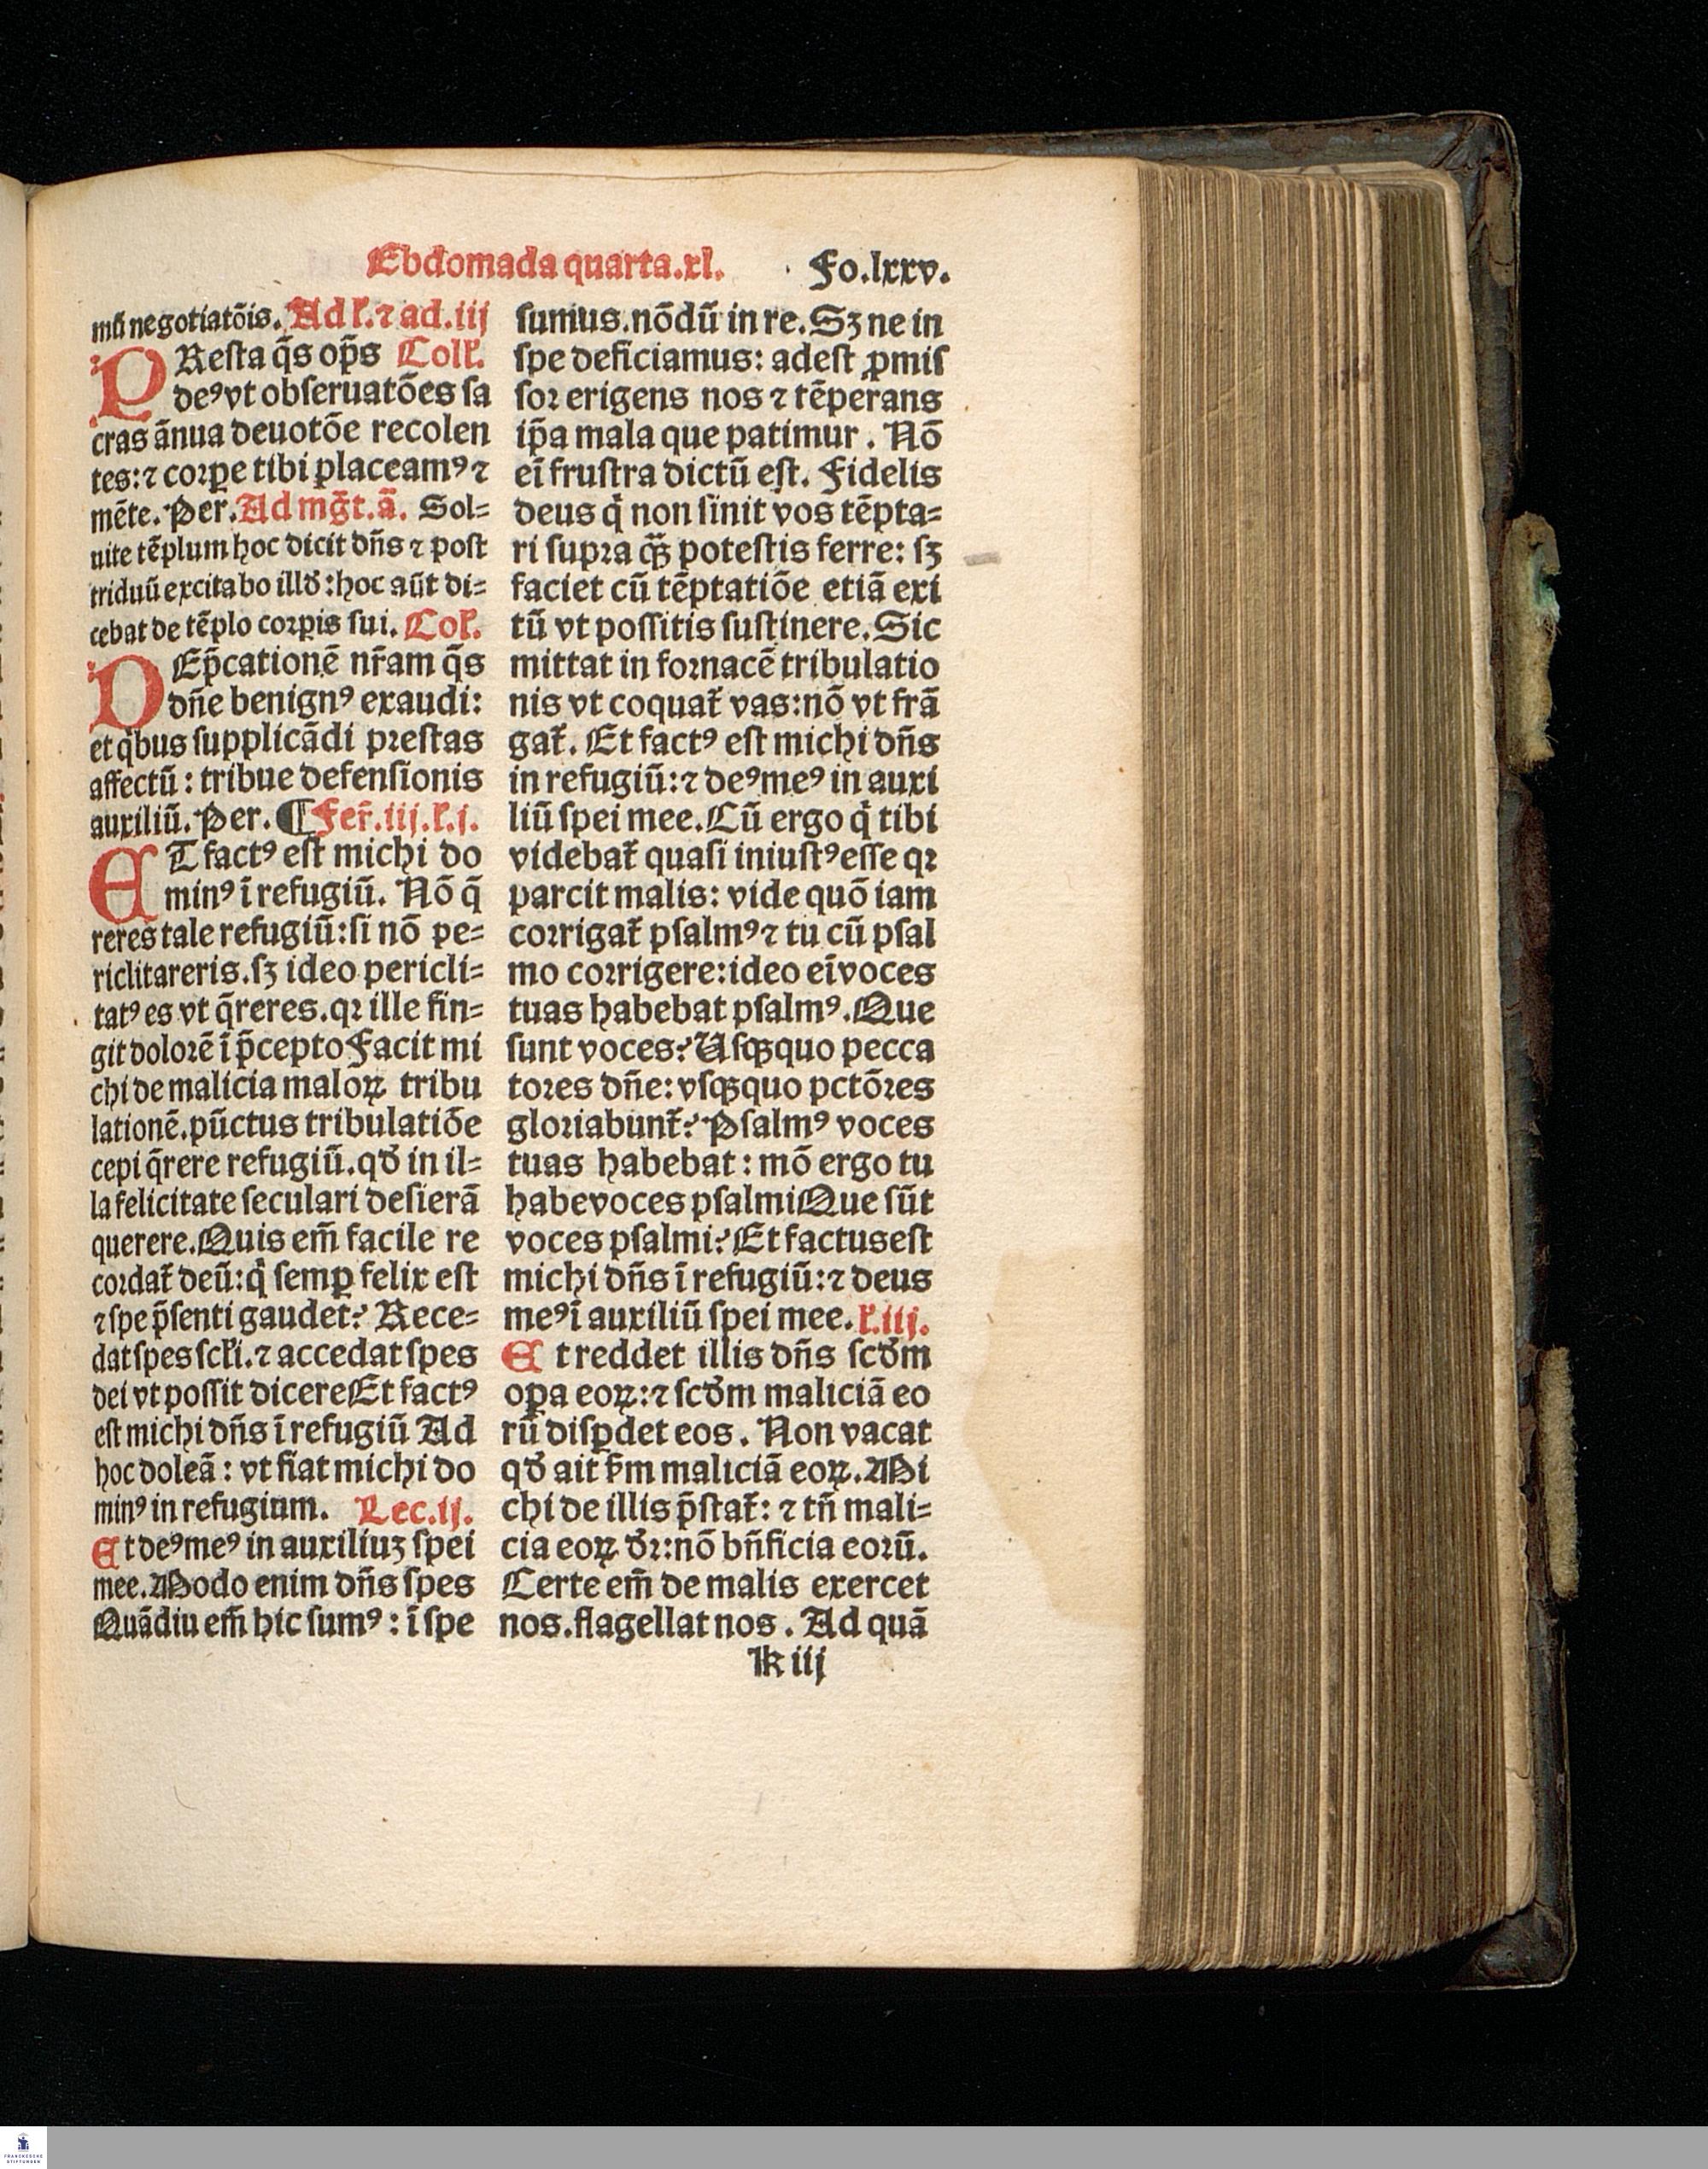 Ebdomada quarta.xl. Fo.lxxv.
mũ negotiatõis. Ad l'. ⁊ ad.iij
PResta q̃s op̃s Coll'.
deꝰ vt obseruatões sa
cras ãnua deuotõe recolen
tes: ⁊ corꝑe tibi placeamꝰ ⁊
mẽte. Per. Ad mg̃t.ã. Sol⸗
uite tẽplum hoc dicit dñs ⁊ post
triduũ excitabo illð: hoc aũt di⸗
cebat de tẽplo corꝑis sui. Col'.
DEp̃cationẽ nr̃am q̃s
dñe benignꝰ exaudi:
et qͥbus supplicãdi prestas
affectũ: tribue defensionis
auxiliũ. Per. ¶ Fer̃.iij.l'.j.
ET factꝰ est michi do
minꝰ ĩ refugiũ. Nõ q̃
reres tale refugiũ: si nõ pe⸗
riclitareris. sꝫ ideo pericli⸗
tatꝰ es vt q̃reres. qꝛ ille fin⸗
git dolorẽ ĩ p̃cepto Facit mi
chi de malicia maloꝝ tribu
lationẽ. pũctus tribulatiõe
cepi q̃rere refugiũ. qð in il⸗
la felicitate seculari desierã
querere. Quis em̃ facile re
cordat̃ deũ: qͥ semꝑ felix est
⁊ spe p̃senti gaudet? Rece⸗
dat spes scl'i. ⁊ accedat spes
dei vt possit dicere Et factꝰ
est michi dñs ĩ refugiũ Ad
hoc doleã: vt fiat michi do
minꝰ in refugium. Lec.ij.
Et deꝰ meꝰ in auxiliuꝫ spei
mee. Modo enim dñs spes
Quãdiu em̃ hic sumꝰ: ĩ spe
sumus. nõdũ in re. Sꝫ ne in
spe deficiamus: adest ꝓmis
sor erigens nos ⁊ tẽperans
ip̃a mala que patimur. Nõ
eĩ frustra dictũ est. Fidelis
deus qͥ non sinit vos tẽpta⸗
ri supra qꝫ̃ potestis ferre: sꝫ
faciet cũ tẽptatiõe etiã exi
tũ vt possitis sustinere. Sic
mittat in fornacẽ tribulatio
nis vt coquat̃ vas: nõ vt frã
gat̃. Et factꝰ est michi dñs
in refugiũ: ⁊ deꝰ meꝰ in auxi
liũ spei mee. Cũ ergo qͥ tibi
videbat̃ quasi iniustꝰ esse qꝛ
parcit malis: vide quõ iam
corrigat̃ psalmꝰ ⁊ tu cũ psal
mo corrigere: ideo eĩ voces
tuas habebat psalmꝰ. Que
sunt voces? Usqꝫquo pecca
tores dñe: vsqꝫquo pctõres
gloriabunt̃? Psalmꝰ voces
tuas habebat: mõ ergo tu
habe voces psalmi Que sũt
voces psalmi? Et factus est
michi dñs ĩ refugiũ: ⁊ deus
meꝰ ĩ auxiliũ spei mee. l'.iij.
Et reddet illis dñs scðm
oꝑa eoꝝ: ⁊ scðm maliciã eo
rũ disꝑdet eos. Non vacat
qð ait ẜm maliciã eoꝝ. Mi
chi de illis p̃stat̃: ⁊ tñ mali⸗
cia eoꝝ ðꝛ: nõ bñficia eorũ.
Certe em̃ de malis exercet
nos. flagellat nos. Ad quã
k iij
FRANCKESCHE
STIFTUNGEN